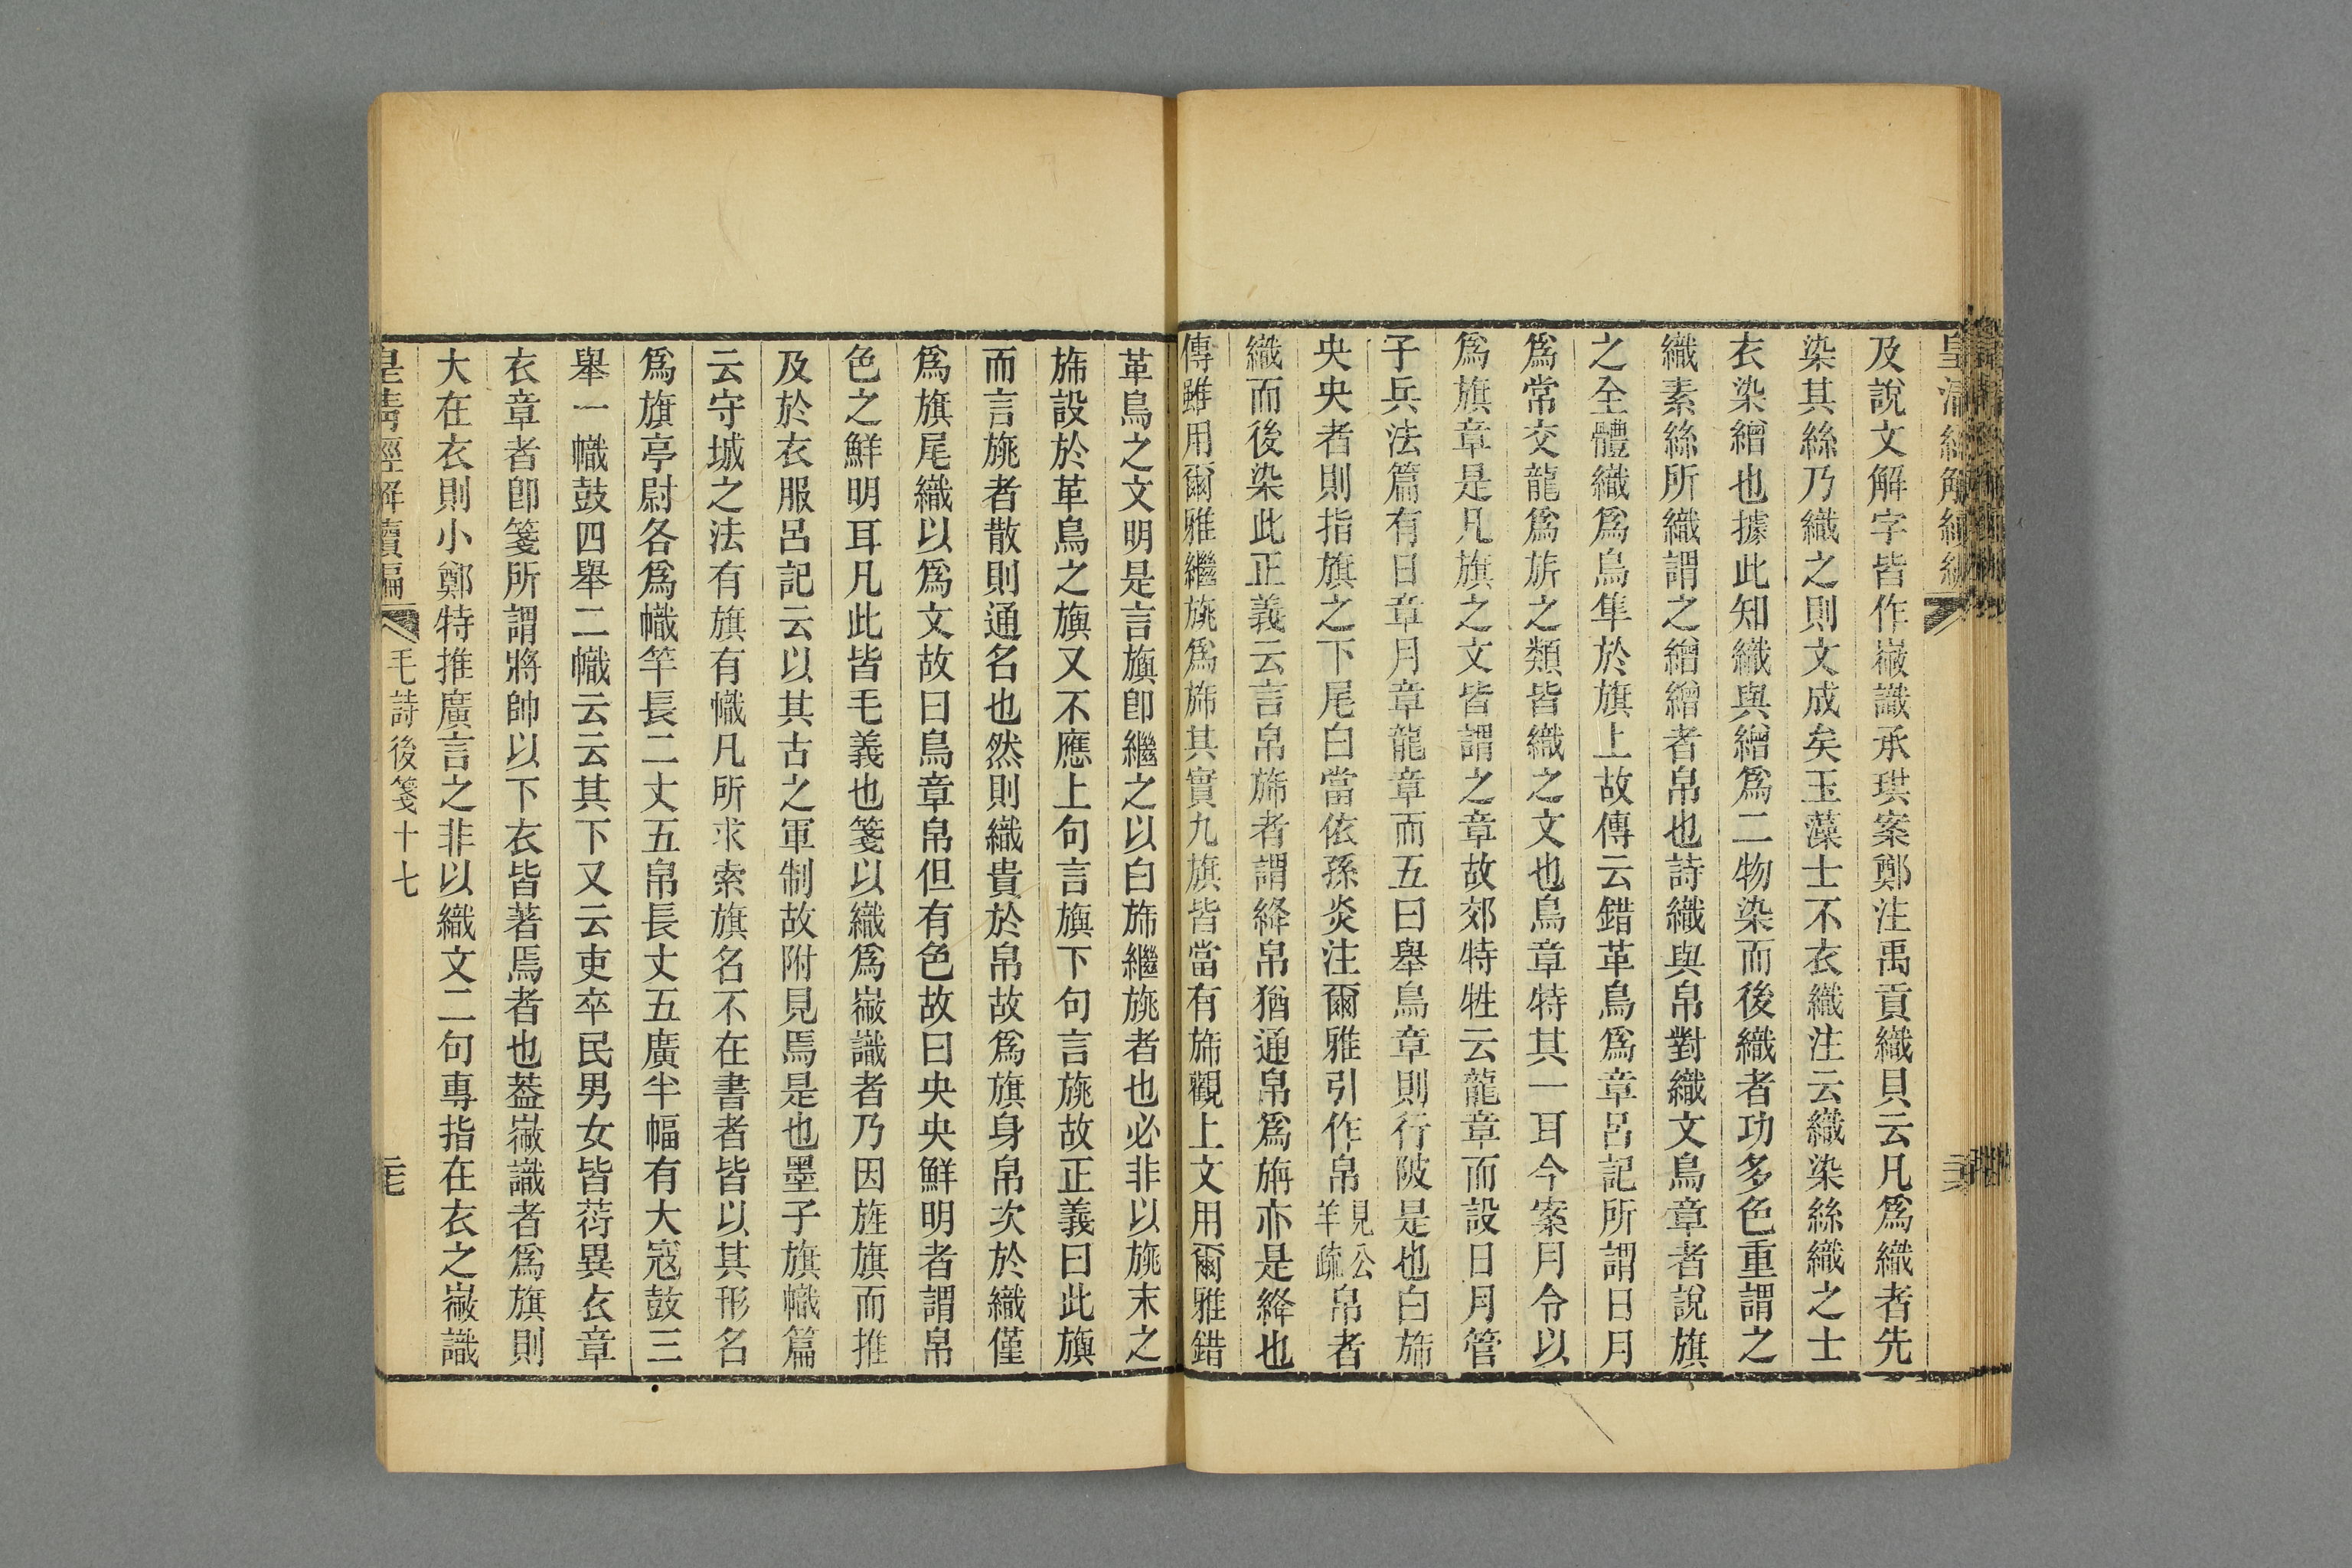 及說文解字皆作㣲識承珙案鄭注禹貢織貝云凡爲織者先
染其絲乃織之則文成矣玉藻士不衣織注云織染絲織之士
衣染繒也據此知織與繒爲二物染而後織者功多色重謂之
織素絲所織謂之繒繒者帛也詩織與帛對織文鳥章者說旗
之全體織爲鳥隼於旗上故傳云錯革鳥爲章呂記所謂日月
爲常交龍爲旂之類皆織之文也鳥章特其一耳今案月令以
爲旗章是凡旗之文皆謂之章故郊特牲云龍章而設日月管
子兵法篇有日章月章龍章而五曰舉鳥章則行陂是也白旆
央央者則指旗之下尾白當依孫炎注爾雅引作帛見公羊疏帛者
織而後染此正義云言帛旆者謂絳帛猶通帛爲旃亦是絳也
傳雖用爾雅繼旐爲旆其實九旗皆當有旆觀上文用爾雅錯
革鳥之文明是言旟卽繼之以白旆繼旐者也必非以旐末之
旆設於革鳥之旟又不應上句言旟下句言旐故正義曰此旟
而言旐者散則通名也然則織貴於帛故爲旗身帛次於織僅
爲旗尾織以爲文故曰鳥章帛但有色故曰央央鮮明者謂帛
色之鮮明耳凡此皆毛義也箋以織爲㣲識者乃因旌旗而推
及於衣服呂記云以其古之軍制故附見焉是也墨子旗幟篇
云守城之法有旗有幟凡所求索旗名不在書者皆以其形名
爲旗亭尉各爲幟竿長二丈五帛長丈五廣半幅有大寇鼓三
舉一幟鼓四舉二幟云云其下又云吏卒民男女皆荷異衣章
衣章者卽箋所謂將帥以下衣皆著焉者也葢㣲識者爲旗則
大在衣則小鄭特推廣言之非以織文二句專指在衣之㣲識
皇清經解續編 毛詩後箋十七